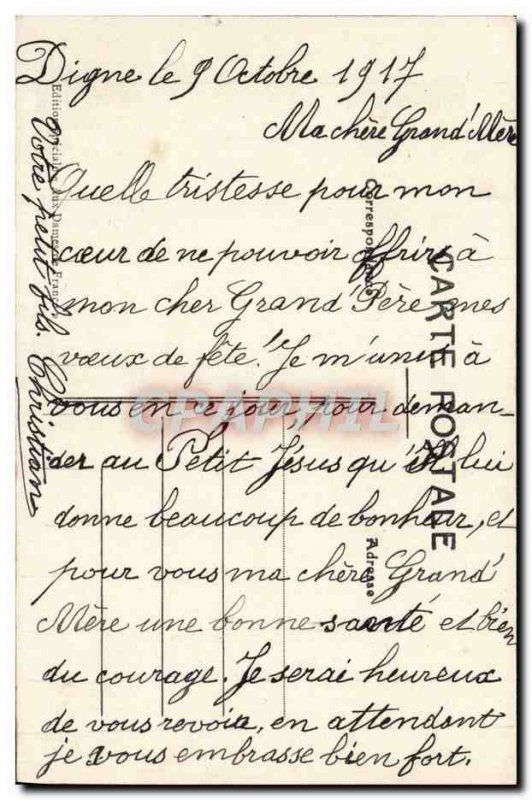 Digne le 9 Octobre 1917
Ma chère Grand'Mère
Quelle tristesse pour mon
cœur de ne pouvoir offrir à
mon cher Grand'Père mes
vœux de fête! Je m'unis à
vous en ce jour, pour deman-
der au Petit Jésus qu'il lui
donne beaucoup de bonheur, et
pour vous ma chère Grand'
Mère une bonne santé et bien
du courage. Je serai heureux
de vous revoir, en attendant
je vous embrasse bien fort.
Votre petit fils. Christian
CARTE POSTALE
Correspondance
Adresse
CPAPHIL